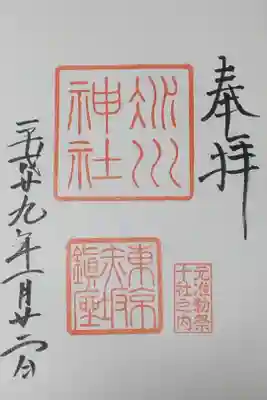 奉拝
氷川
神社
元准勅祭
十社之内
東京
赤坂
鎮座
平成廿九年一月廿二日